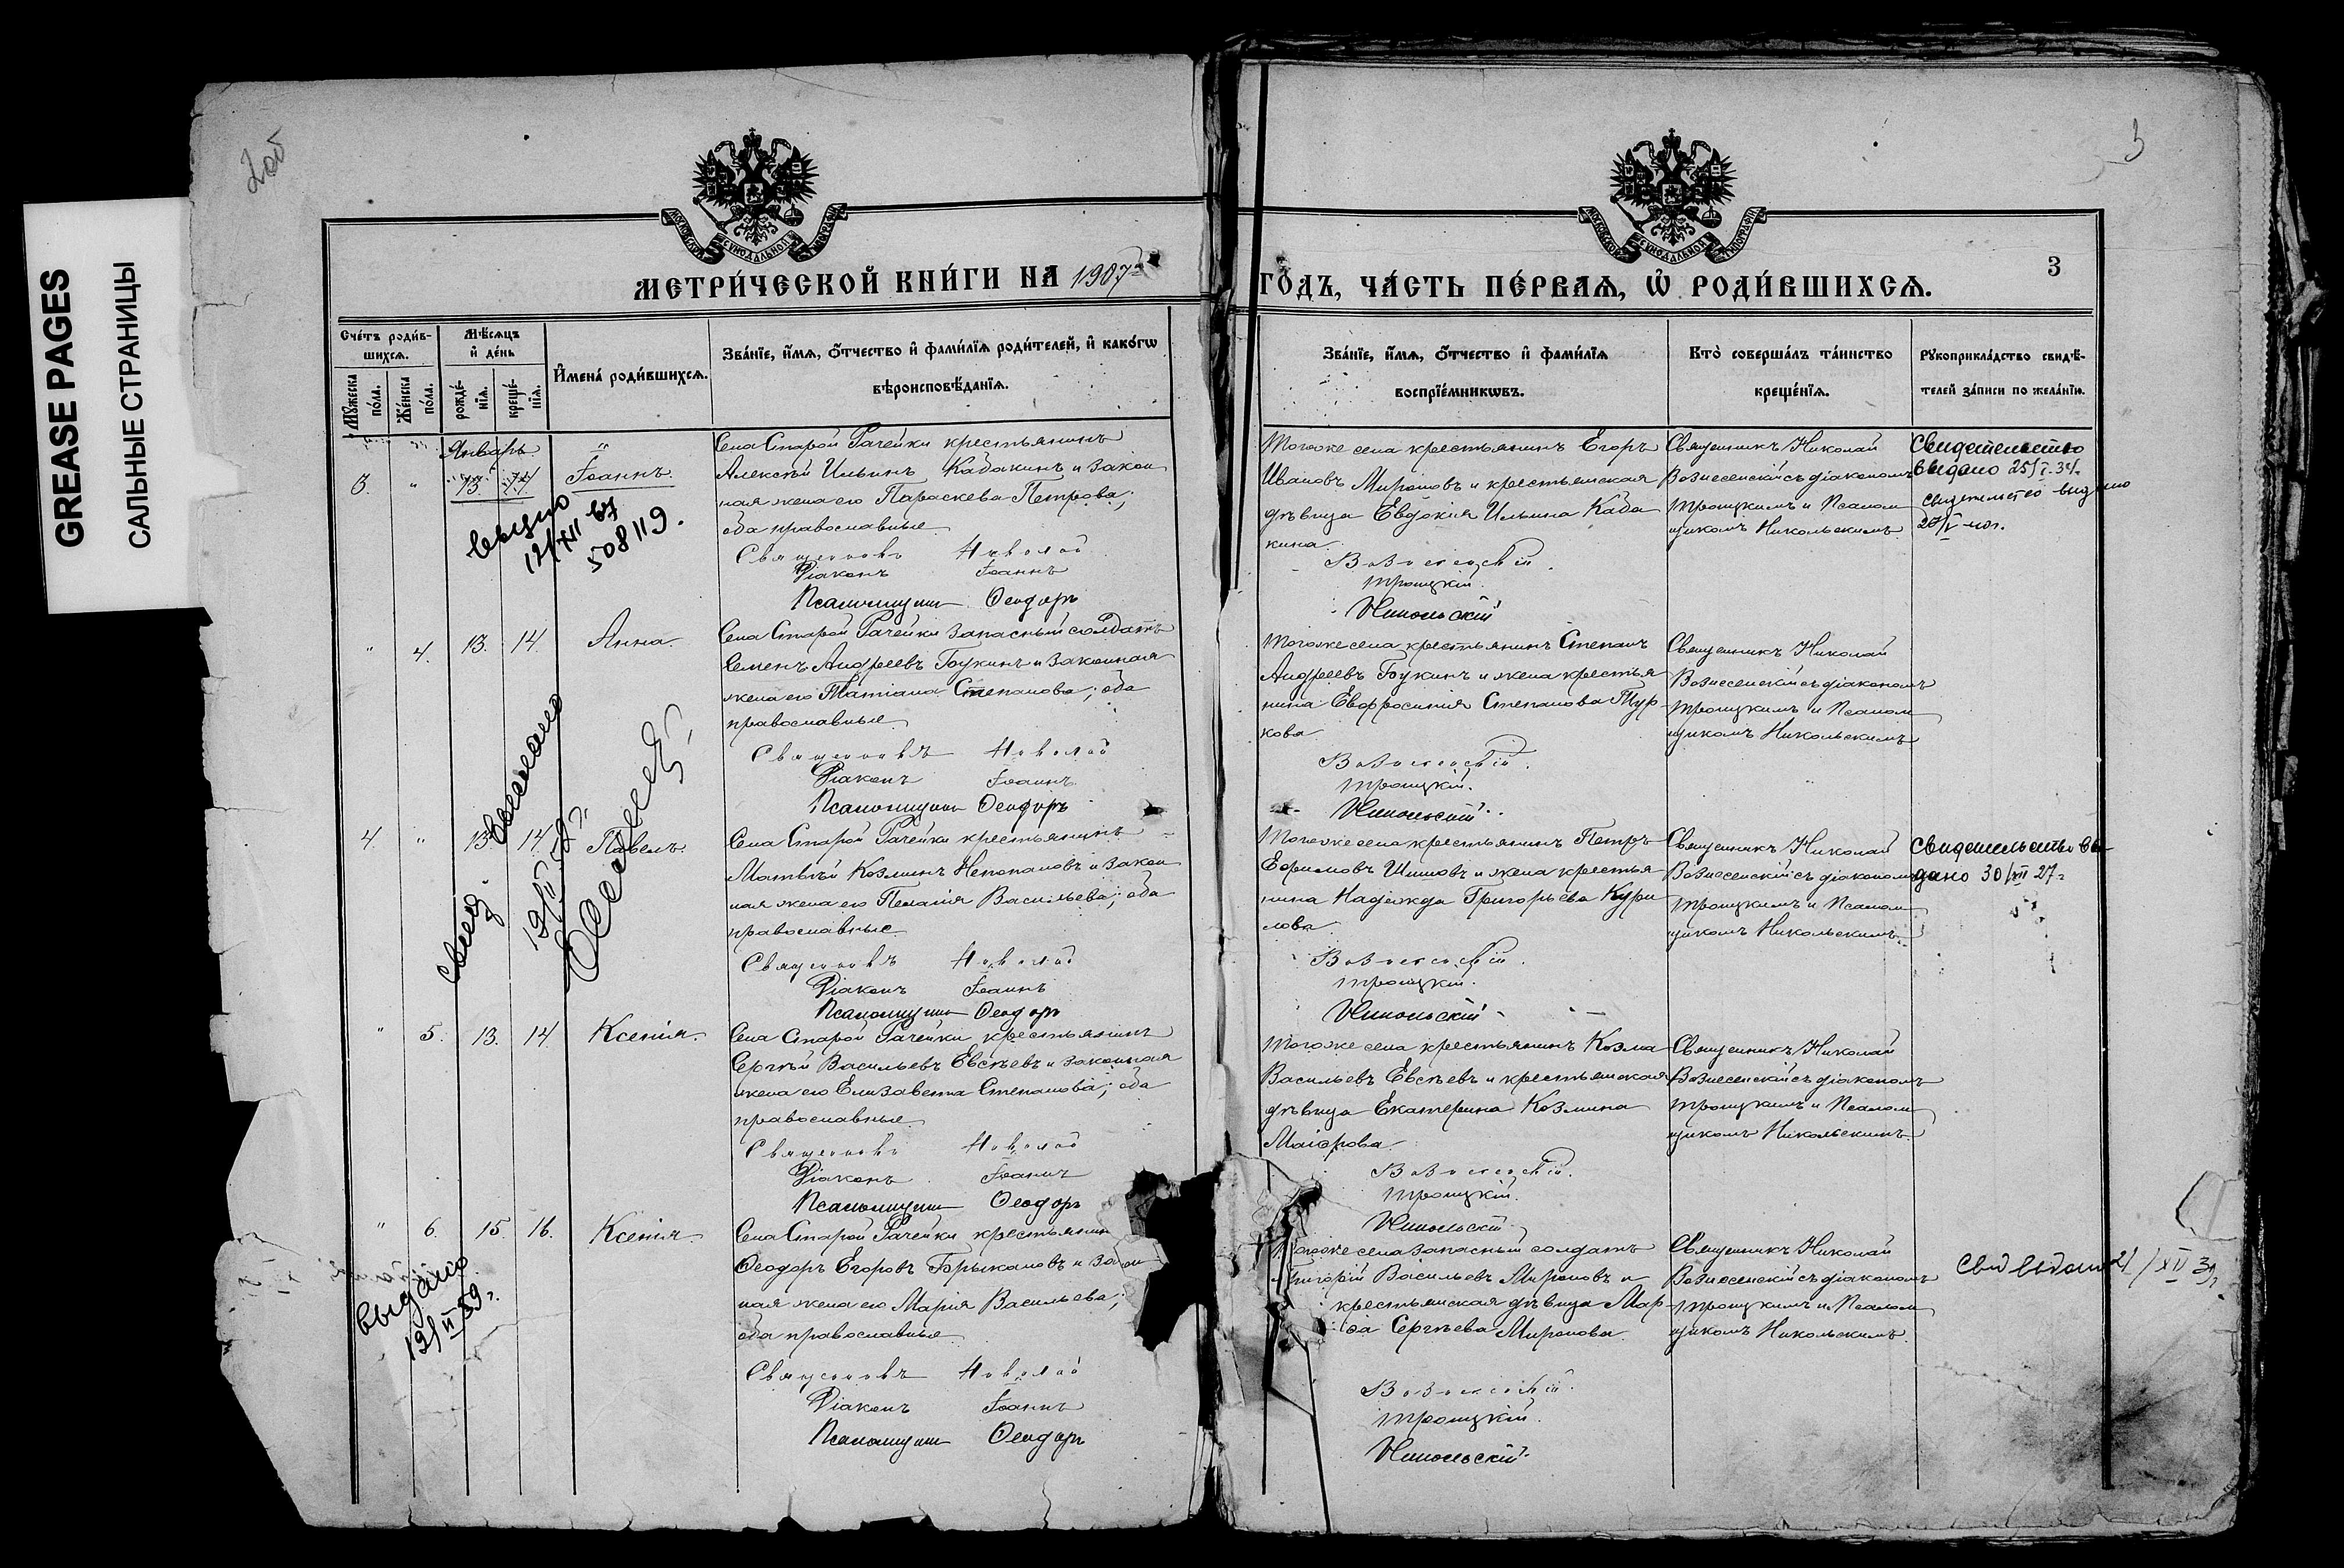 GREASE PAGES
САЛЬНЫЕ СТРАНИЦЫ
2об
3
МЕТРИ́ЧЕСКОЙ КНИ́ГИ НА 1907
ГО́ДЪ, ЧА́СТЬ ПЕ́РВАѦ, Ѡ҆ РОДИ́ВШИХСѦ.
3
Сче́тъ роди́в-
шихсѧ.
Мѣ́сѧцъ
и҆ де́нь
И҆мена̀ роди́вшихсѧ.
Зва́нїе, и҆́мѧ, ѻ҆́тчество и҆ фами́лїѧ роди́телей, и҆ како́гѡ
вѣроисповѣ́данїѧ.
Мꙋ́жеска
по́ла.
Же́нска
по́ла.
рожде́-
нїѧ.
креще́-
нїѧ.
Зва́нїе, и҆́мѧ, ѻ҆́тчество и҆ фами́лїѧ
воспрїе́мникѡвъ.
Кто̀ соверша́лъ та́инство
креще́нїѧ.
Рꙋкоприкла́дство свидѣ́-
телей за́писи по жела́нїю.
Январь
3. " 13. 14. Іоаннъ.
Села Старой Рачейки крестьянинъ
Алексѣй Ильинъ Кабакинъ и закон
ная жена его Параскева Петрова;
оба православные
Священникъ Николай
Діаконъ Іоаннъ
Псаломщикъ Ѳеодоръ
выдано
12/XII 67
508119.
Тогоже села крестьянинъ Егоръ
Ивановъ Мироновъ и крестьянская
дѣвица Евдокия Ильина Каба
кина.
Вознесенскій
Троицкій.
Никольскій
Священникъ Николай
Вознесенскій съ діакономъ
Троицкимъ и Псалом
щикомъ Никольскимъ.
Свидетельство
выдано 25/I. 34.
свидетельство выдано
20/V 40г.
" 4. 13. 14. Анна.
Села Старой Рачейки запасный солдатъ
Семенъ Андреевъ Гоукинъ и законная
жена его Татіана Степанова; оба
православные
Священникъ Николай
Діаконъ Іоаннъ
Псаломщикъ Ѳеодоръ
Тогоже села крестьянинъ Степанъ
Андреевъ Гоукинъ и жена крестья
нина Евфросинія Степанова Тур
кова
Вознесенскій.
Троицкій.
Никольскій
Священникъ Николай
Вознесенскій съ діакономъ
Троицкимъ и Псалом
щикомъ Никольскимъ
4. " 13. 14. Павелъ.
Села Старой Рачейки крестьянинъ
Матвѣй Козминъ Непопановъ и закон
ная жена его Пелагія Васильева; оба
православные
Священникъ Николай
Діаконъ Іоаннъ
Псаломщикъ Ѳеодоръ
Тогоже села крестьянинъ Петръ
Ефримовъ Шишовъ и жена крестья
нина Надежда Григорьева Кури
лова
Вознесенскій.
Троицкій.
Никольскій
Священникъ Николай
Вознесенскій съ діакономъ
Троицкимъ и Псалом
щикомъ Никольскимъ.
Свидетельство вы-
дано 30/XII 27г
" 5. 13. 14. Ксенія.
Села Старой Рачейки крестьянинъ
Сергѣй Васильевъ Евсѣевъ и законная
жена его Елизавета Степанова; оба
православные
Священникъ Николай
Діаконъ Іоаннъ
Псаломщикъ Ѳеодоръ
Тогоже села крестьянинъ Козма
Васильевъ Евсѣевъ и крестьянская
дѣвица Екатерина Козмина
Маіорова
Вознесенскій.
Троицкій.
Никольскій
Священникъ Николай
Вознесенскій съ діакономъ
Троицкимъ и Псалом
щикомъ Никольскимъ.
" 6. 15. 16. Ксенія.
выдано
19/II 59г.
Села Старой Рачейки крестьянин
Ѳеодоръ Егоровъ Брыкановъ и закон
ная жена его Марія Васильева;
оба православные
Священникъ Николай
Діаконъ Іоаннъ
Псаломщикъ Ѳеодоръ
Тогоже села запасный солдатъ
Григорій Васильевъ Мироновъ и
крестьянская дѣвица Мар
Сергѣева Миронова
Вознесенскій.
Троицкій.
Никольскій
Священникъ Николай
Вознесенскій съ діакономъ
Троицкимъ и Псалом
щикомъ Никольскимъ.
Свид выдано 21/XII 39г.